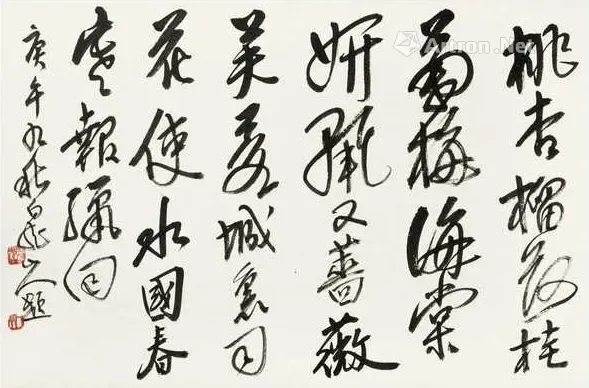 桃杏榴荷桂
菊梅海棠
妍 又薔薇
芙蓉城裏司
花使水國春
寒報 同
庚午九秋 山人題
Artron.Net